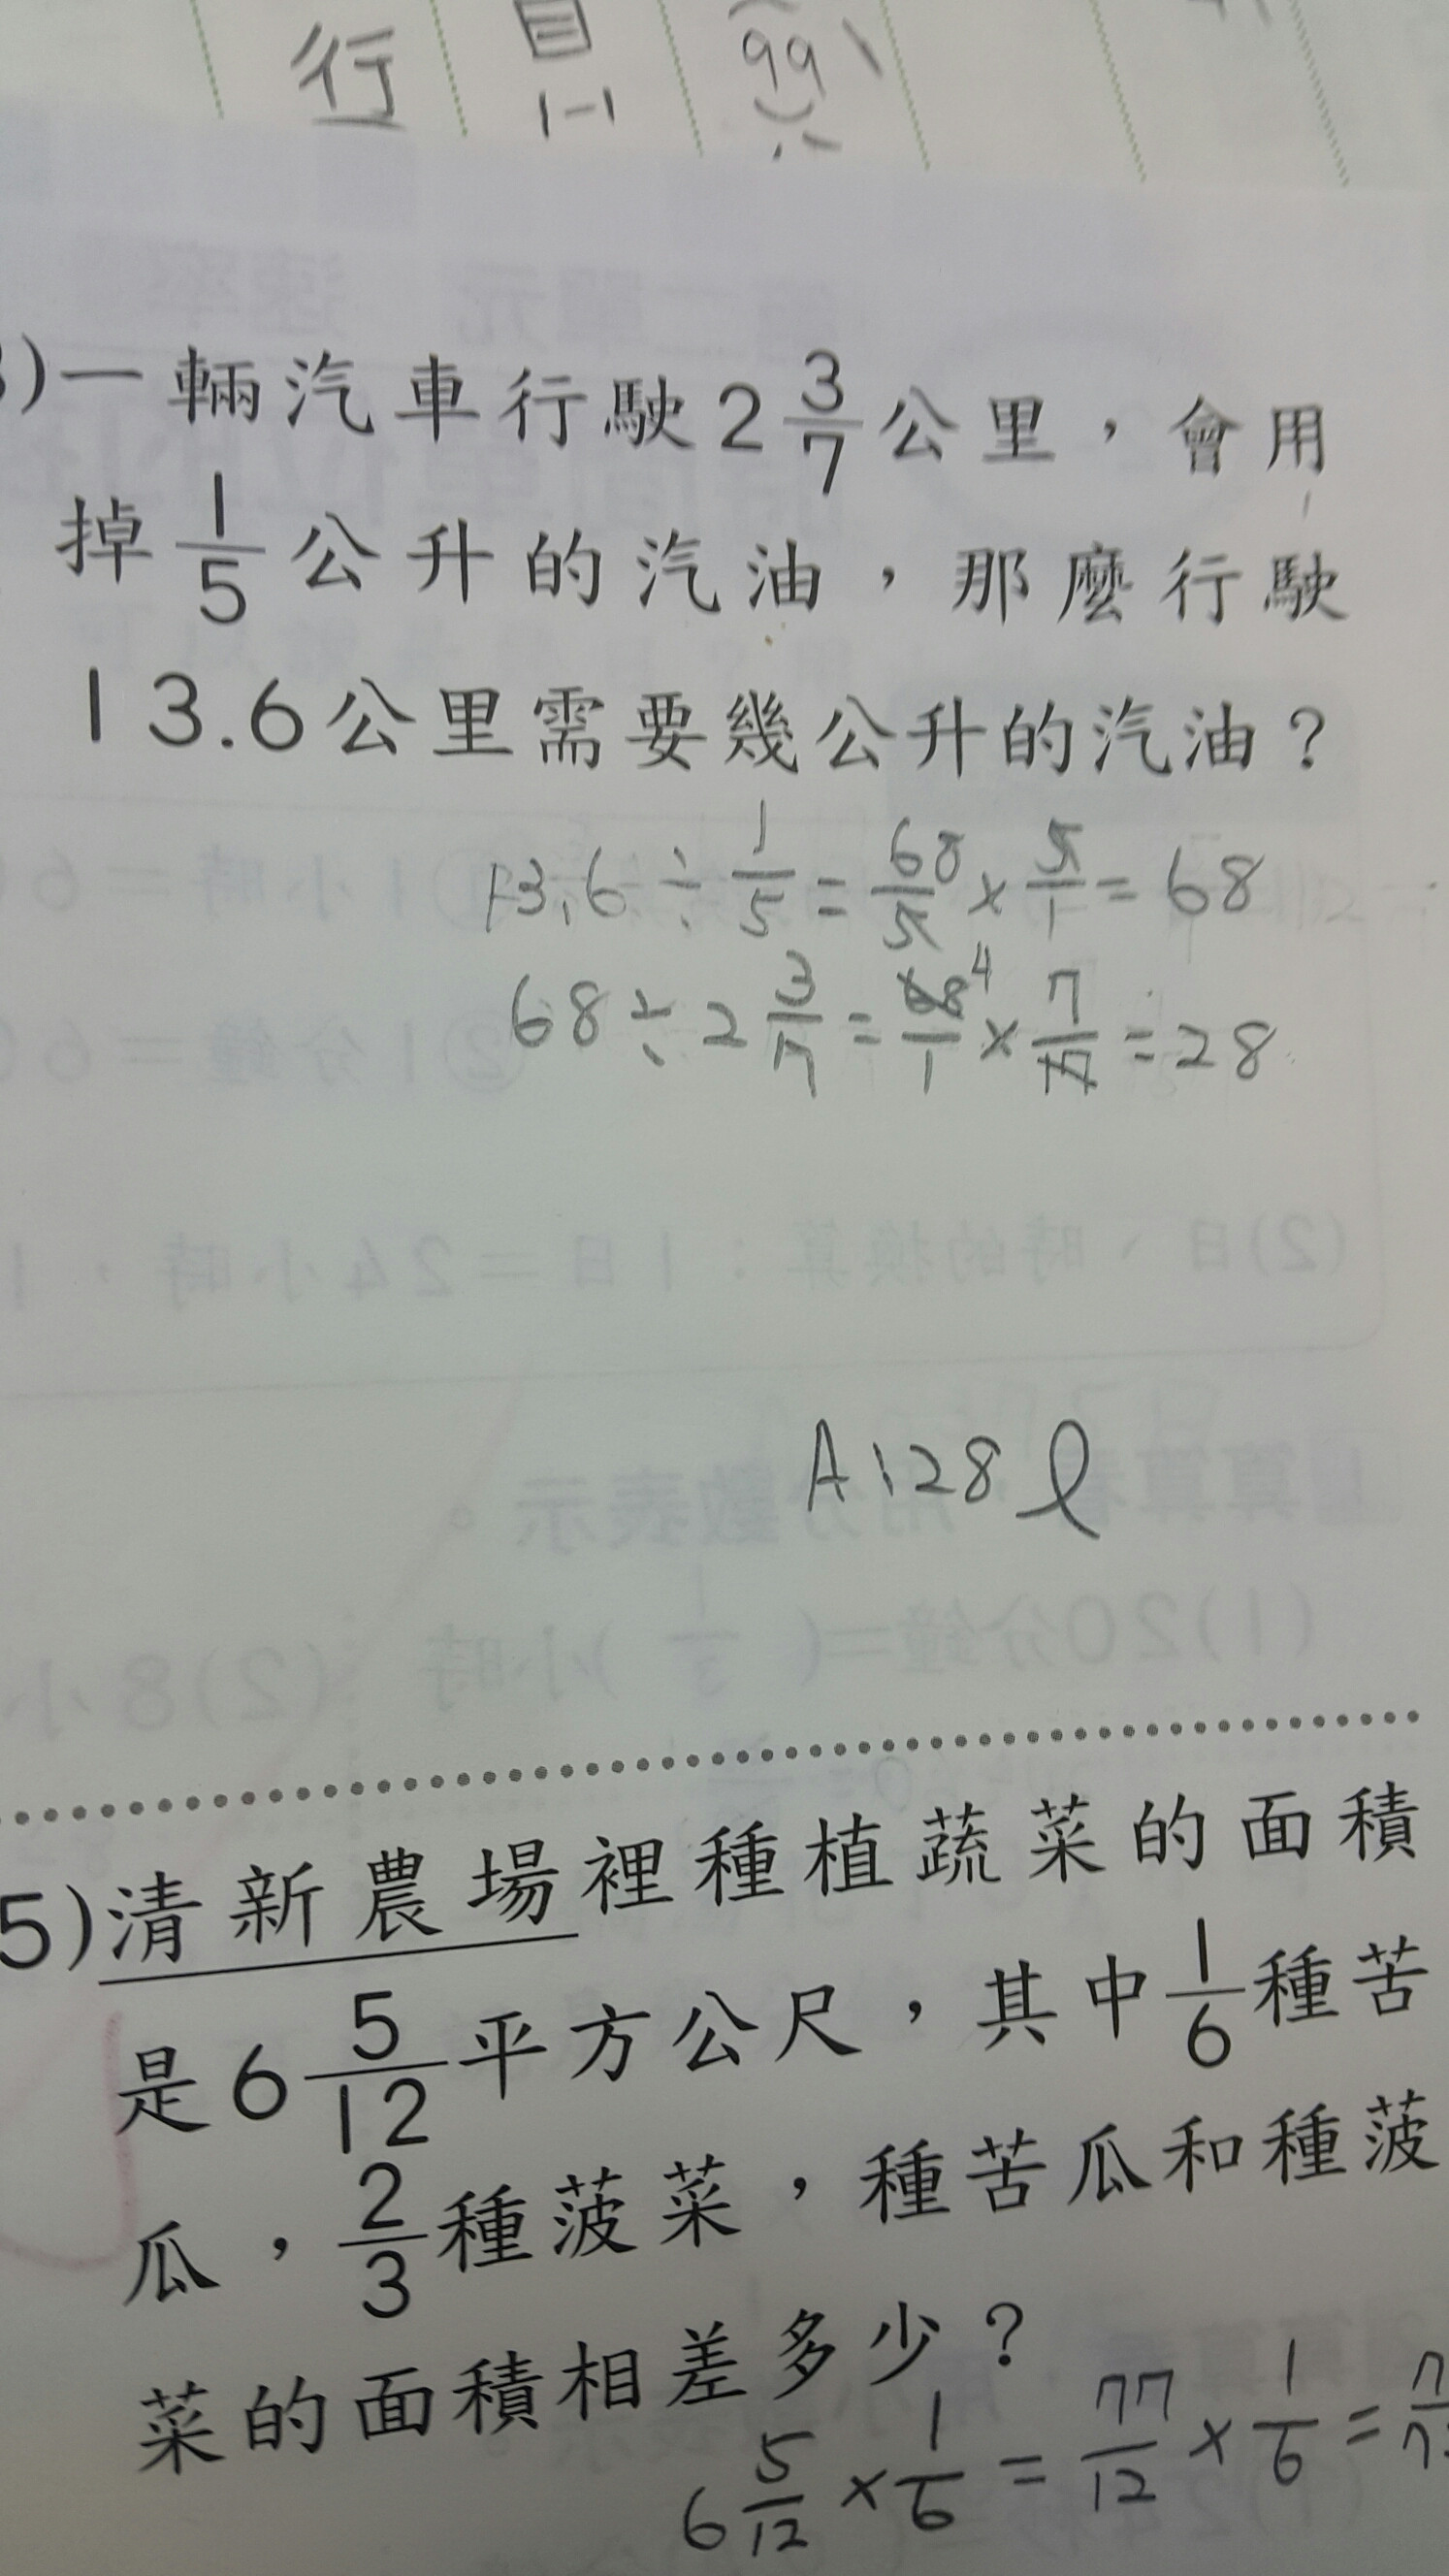 行
目
1-1
99
3)一輛汽車行駛2 3/7 公里，會用
掉 1/5 公升的汽油，那麼行駛
13.6公里需要幾公升的汽油？
13.6 ÷ 1/5 = 68/5 × 5/1 = 68
68 ÷ 2 3/7 = 68/1 4 × 7/17 = 28
A:28 ℓ
5)清新農場裡種植蔬菜的面積
是6 5/12 平方公尺，其中 1/6 種苦
瓜，2/3 種菠菜，種苦瓜和種菠
菜的面積相差多少？
6 5/12 × 1/6 = 77/12 × 1/6 =